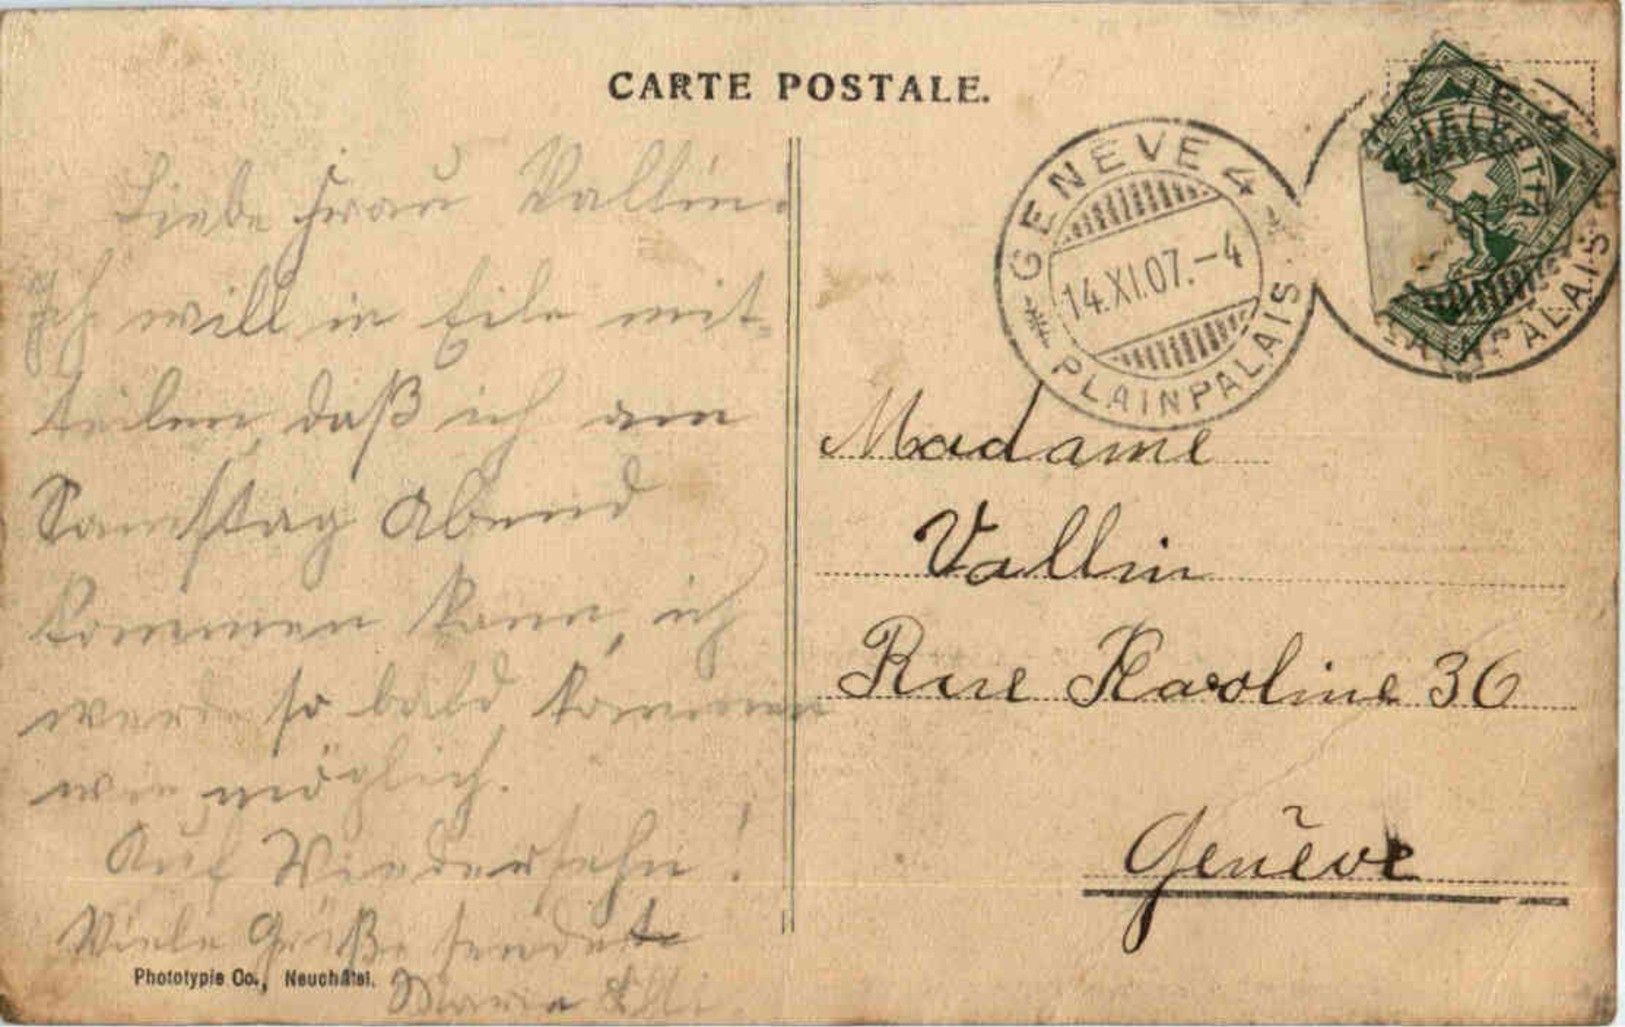 CARTE POSTALE.
Liebe Frau Vallin.
Ich will in Eile mit-
teilen, daß ich am
Samstag Abend
kommen kann, ich
werde so bald kommen
wie möglich.
Auf Wiedersehn!
Viele Grüße sendet
Maria
Phototypie Co., Neuchâtel.
GENÈVE 4
14.XI.07.-4
PLAINPALAIS
HELVETIA
PLAINPALAIS
Madame
Vallin
Rue Karoline 36
Genève